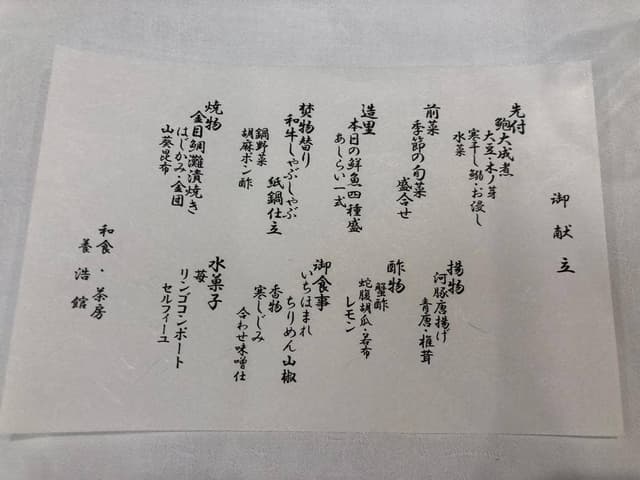 御献立
先付
鮑大成煮
大豆・木ノ芽
寒干し鰯・お浸し
水菜
前菜
季節の旬菜
盛合せ
造里
本日の鮮魚四種盛
あしらい一式
焚物替り
和牛しゃぶしゃぶ
紙鍋仕立
鍋野菜
胡麻ポン酢
焼物
金目鯛灘漬焼き
はじかみ・金団
山葵昆布
揚物
河豚唐揚げ
青唐・椎茸
酢物
蟹酢
蛇腹胡瓜・若布
レモン
御食事
いちほまれ
ちりめん山椒
香物
寒しじみ
合わせ味噌仕
水菓子
苺
リンゴコンポート
セルフィーユ
和食・茶房
養浩館